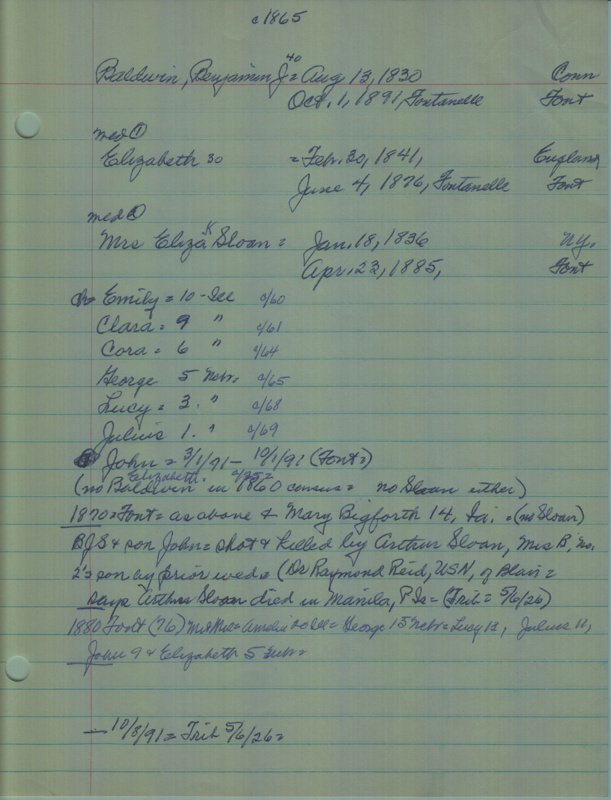 c1865
Baldwin, Benjamin J 40 = Aug 13, 1830 Conn
Oct. 1, 1891, Fontanelle Font
med ①
Elizabeth 30 = Feb. 30, 1841, England
June 4, 1876, Fontanelle Font
med ②
Mrs Eliza K Sloan = Jan. 18, 1836 N.Y.
Apr. 23, 1885, Font
ch Emily = 10 - Ill c/60
Clara = 9 " c/61
Cora = 6 " c/64
George 5 Nebr. c/65
Lucy = 3. " c/68
Julius 1. " c/69
John = 3/1/91 - 10/1/91 (Font=)
Elizabeth. c/75=
(no Baldwin in 1860 census = no Sloan either)
1870 = Font = as above & Mary Bigforth 14, Ia. = (no Sloan)
BJS & son John = shot & killed by Arthur Sloan, Mrs B, no.
2's son by prior wed. (Dr Raymond Reid, USN, of Blair =
says Arthur Sloan died in Manila, P Is = (Trib = 5/6/26)
1880 Font (76) = George 15 Nebr = Lucy 12, Julius 11,
John 9 & Elizabeth 5 Nebr =
— 10/8/91 = Trib 5/6/26 =